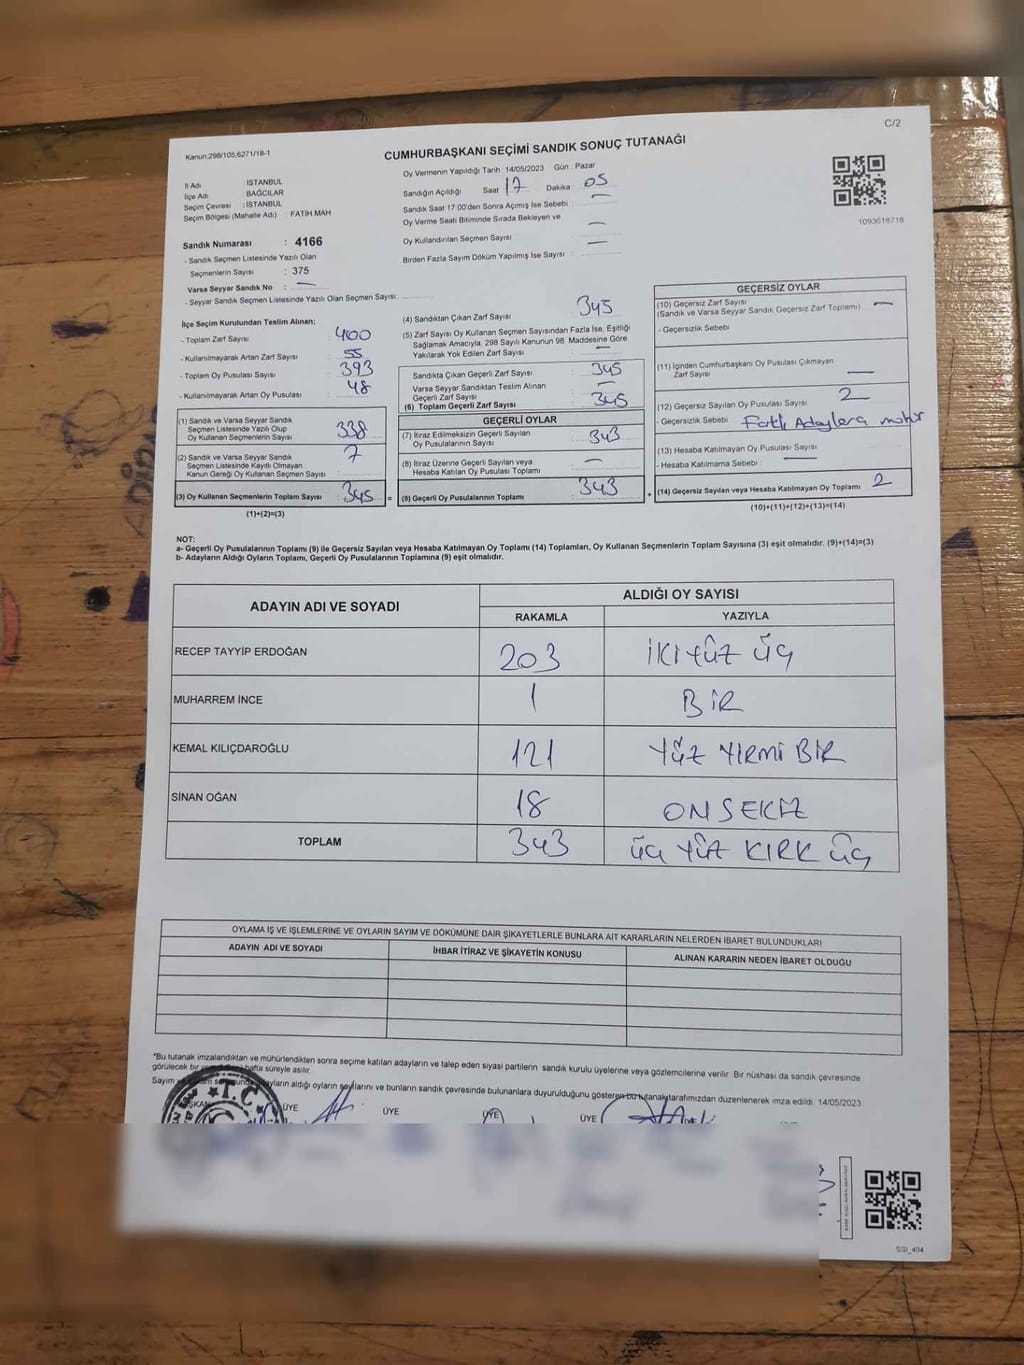 C/2
Kanun:298/105;6271/18-1
CUMHURBAŞKANI SEÇİMİ SANDIK SONUÇ TUTANAĞI
İl Adı : İSTANBUL
İlçe Adı : BAĞCILAR
Seçim Çevresi : İSTANBUL
Seçim Bölgesi (Mahalle Adı) : FATIH MAH
Sandık Numarası : 4166
- Sandık Seçmen Listesinde Yazılı Olan
Seçmenlerin Sayısı : 375
Varsa Seyyar Sandık No : —
- Seyyar Sandık Seçmen Listesinde Yazılı Olan Seçmen Sayısı:
Oy Vermenin Yapıldığı Tarih : 14/05/2023 Gün : Pazar
Sandığın Açıldığı Saat : 17 Dakika : 05
Sandık Saat 17:00'den Sonra Açımış İse Sebebi : —
Oy Verme Saati Bitiminde Sırada Bekleyen ve
Oy Kullandırılan Seçmen Sayısı : —
Birden Fazla Sayım Döküm Yapılmış İse Sayısı : —
1093618718
İlçe Seçim Kurulundan Teslim Alınan;
- Toplam Zarf Sayısı : 400
- Kullanılmayarak Artan Zarf Sayısı : 55
- Toplam Oy Pusulası Sayısı : 393
- Kullanılmayarak Artan Oy Pusulası : 48
(1) Sandık ve Varsa Seyyar Sandık
Seçmen Listesinde Yazılı Olup
Oy Kullanan Seçmenlerin Sayısı : 338
(2) Sandık ve Varsa Seyyar Sandık
Seçmen Listesinde Kayıtlı Olmayan
Kanun Gereği Oy Kullanan Seçmen Sayısı : 7
(3) Oy Kullanan Seçmenlerin Toplam Sayısı : 345 =
(1)+(2)=(3)
(4) Sandıktan Çıkan Zarf Sayısı : 345
(5) Zarf Sayısı Oy Kullanan Seçmen Sayısından Fazla İse, Eşitliği
Sağlamak Amacıyla, 298 Sayılı Kanunun 98. Maddesine Göre
Yakılarak Yok Edilen Zarf Sayısı : —
Sandıkta Çıkan Geçerli Zarf Sayısı : 345
Varsa Seyyar Sandıktan Teslim Alınan
Geçerli Zarf Sayısı : —
(6) Toplam Geçerli Zarf Sayısı : 345
GEÇERLİ OYLAR
(7) İtiraz Edilmeksizin Geçerli Sayılan
Oy Pusulalarının Sayısı : 343
(8) İtiraz Üzerine Geçerli Sayılan veya
Hesaba Katılan Oy Pusulası Toplamı : —
(9) Geçerli Oy Pusulalarının Toplamı : 343 +
GEÇERSİZ OYLAR
(10) Geçersiz Zarf Sayısı : —
(Sandık ve Varsa Seyyar Sandık Geçersiz Zarf Toplamı)
- Geçersizlik Sebebi
(11) İçinden Cumhurbaşkanı Oy Pusulası Çıkmayan
Zarf Sayısı : —
(12) Geçersiz Sayılan Oy Pusulası Sayısı : 2
- Geçersizlik Sebebi : Farklı Adaylara mühür
(13) Hesaba Katılmayan Oy Pusulası Sayısı :
- Hesaba Katılmama Sebebi : —
(14) Geçersiz Sayılan veya Hesaba Katılmayan Oy Toplamı : 2
(10)+(11)+(12)+(13)=(14)
NOT:
a- Geçerli Oy Pusulalarının Toplamı (9) ile Geçersiz Sayılan veya Hesaba Katılmayan Oy Toplamı (14) Toplamları, Oy Kullanan Seçmenlerin Toplam Sayısına (3) eşit olmalıdır. (9)+(14)=(3)
b- Adayların Aldığı Oyların Toplamı, Geçerli Oy Pusulalarının Toplamına (9) eşit olmalıdır.
ADAYIN ADI VE SOYADI ALDIĞI OY SAYISI
RAKAMLA YAZIYLA
RECEP TAYYİP ERDOĞAN 203 İKİ YÜZ ÜÇ
MUHARREM İNCE 1 BİR
KEMAL KILIÇDAROĞLU 121 YÜZ YİRMİ BİR
SİNAN OĞAN 18 ON SEKİZ
TOPLAM 343 ÜÇ YÜZ KIRK ÜÇ
OYLAMA İŞ VE İŞLEMLERİNE VE OYLARIN SAYIM VE DÖKÜMÜNE DAİR ŞİKAYETLERLE BUNLARA AİT KARARLARIN NELERDEN İBARET BULUNDUKLARI
ADAYIN ADI VE SOYADI İHBAR İTİRAZ VE ŞİKAYETİN KONUSU ALINAN KARARIN NEDEN İBARET OLDUĞU
*Bu tutanak imzalandıktan ve mühürlendikten sonra seçime katılan adayların ve talep eden siyasi partilerin sandık kurulu üyelerine veya gözlemcilerine verilir. Bir nüshası da sandık çevresinde
görülecek bir hafta süreyle asılır.
Sayım aldığı oyların sayılarını ve bunların sandık çevresinde bulunanlara duyurulduğunu gösteren bu tutanak tarafımızdan düzenlenerek imza edildi. 14/05/2023
T.C.
ÜYE ÜYE ÜYE ÜYE
SSI_404